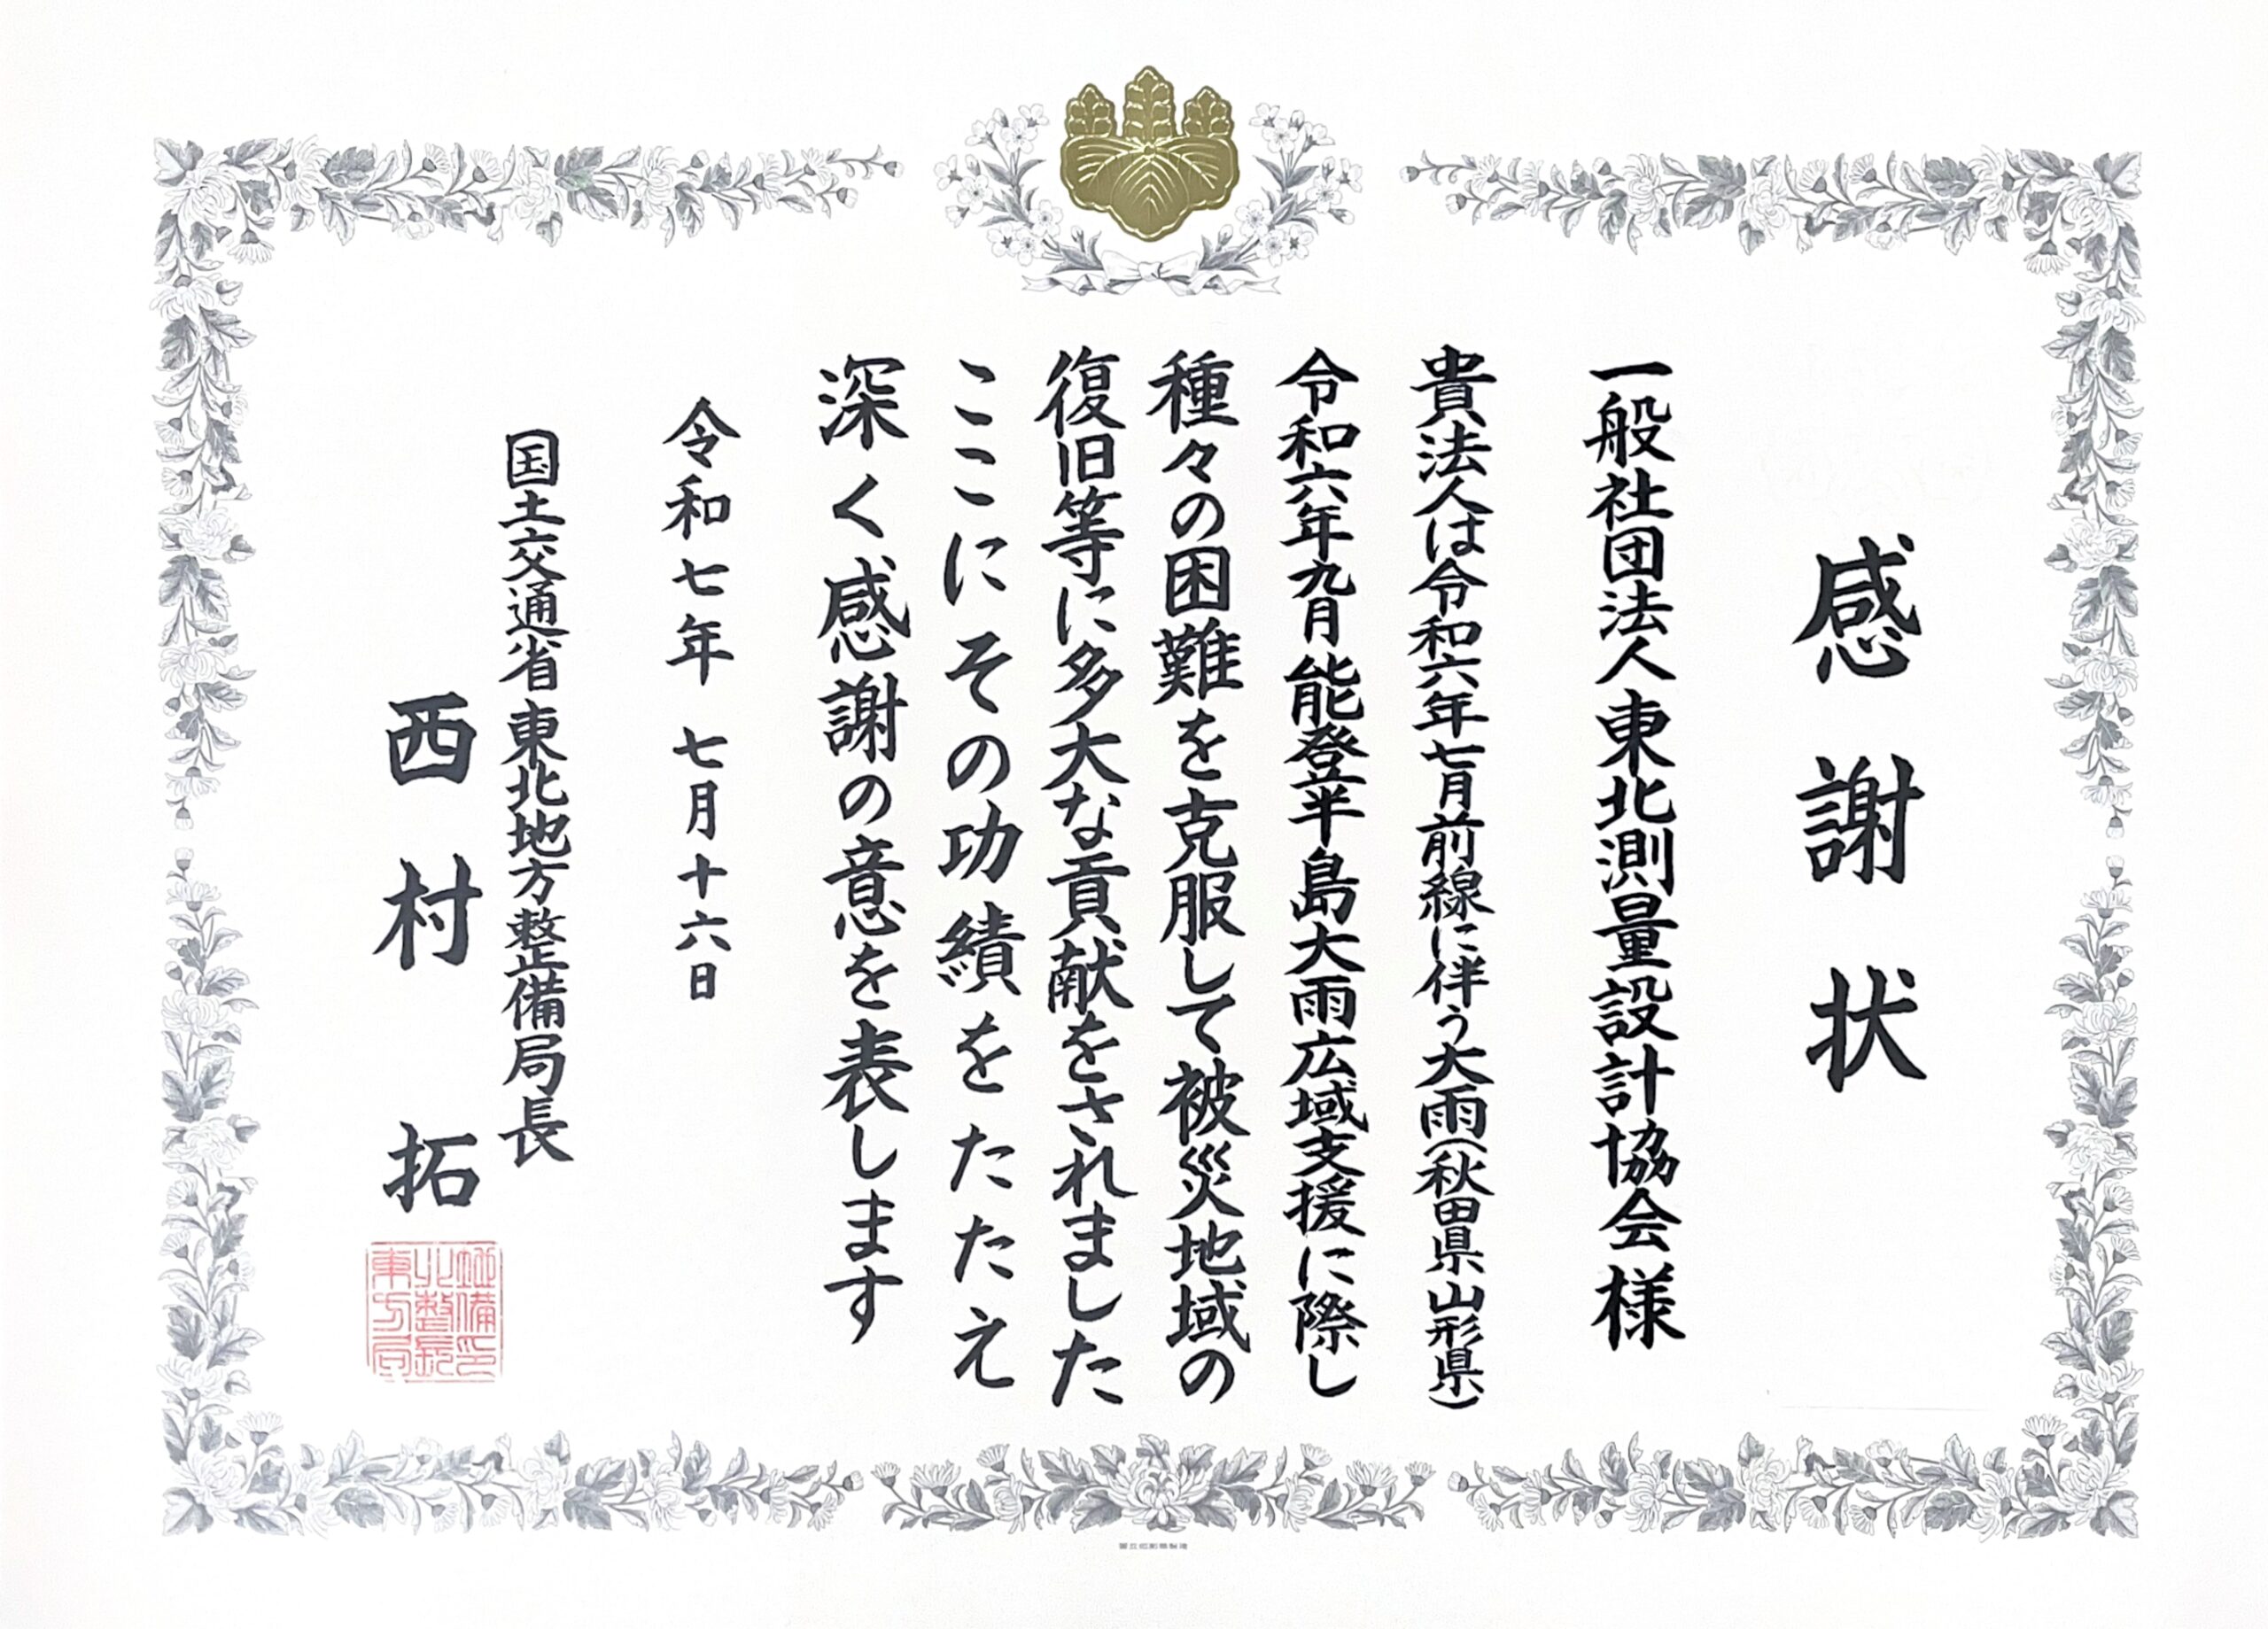 感謝状
一般社団法人東北測量設計協会様
貴法人は令和六年七月前線に伴う大雨(秋田県山形県)
令和六年九月能登半島大雨広域支援に際し
種々の困難を克服して被災地域の
復旧等に多大な貢献をされました
ここにその功績をたたえ
深く感謝の意を表します
令和七年 七月十六日
国土交通省東北地方整備局長
西村 拓